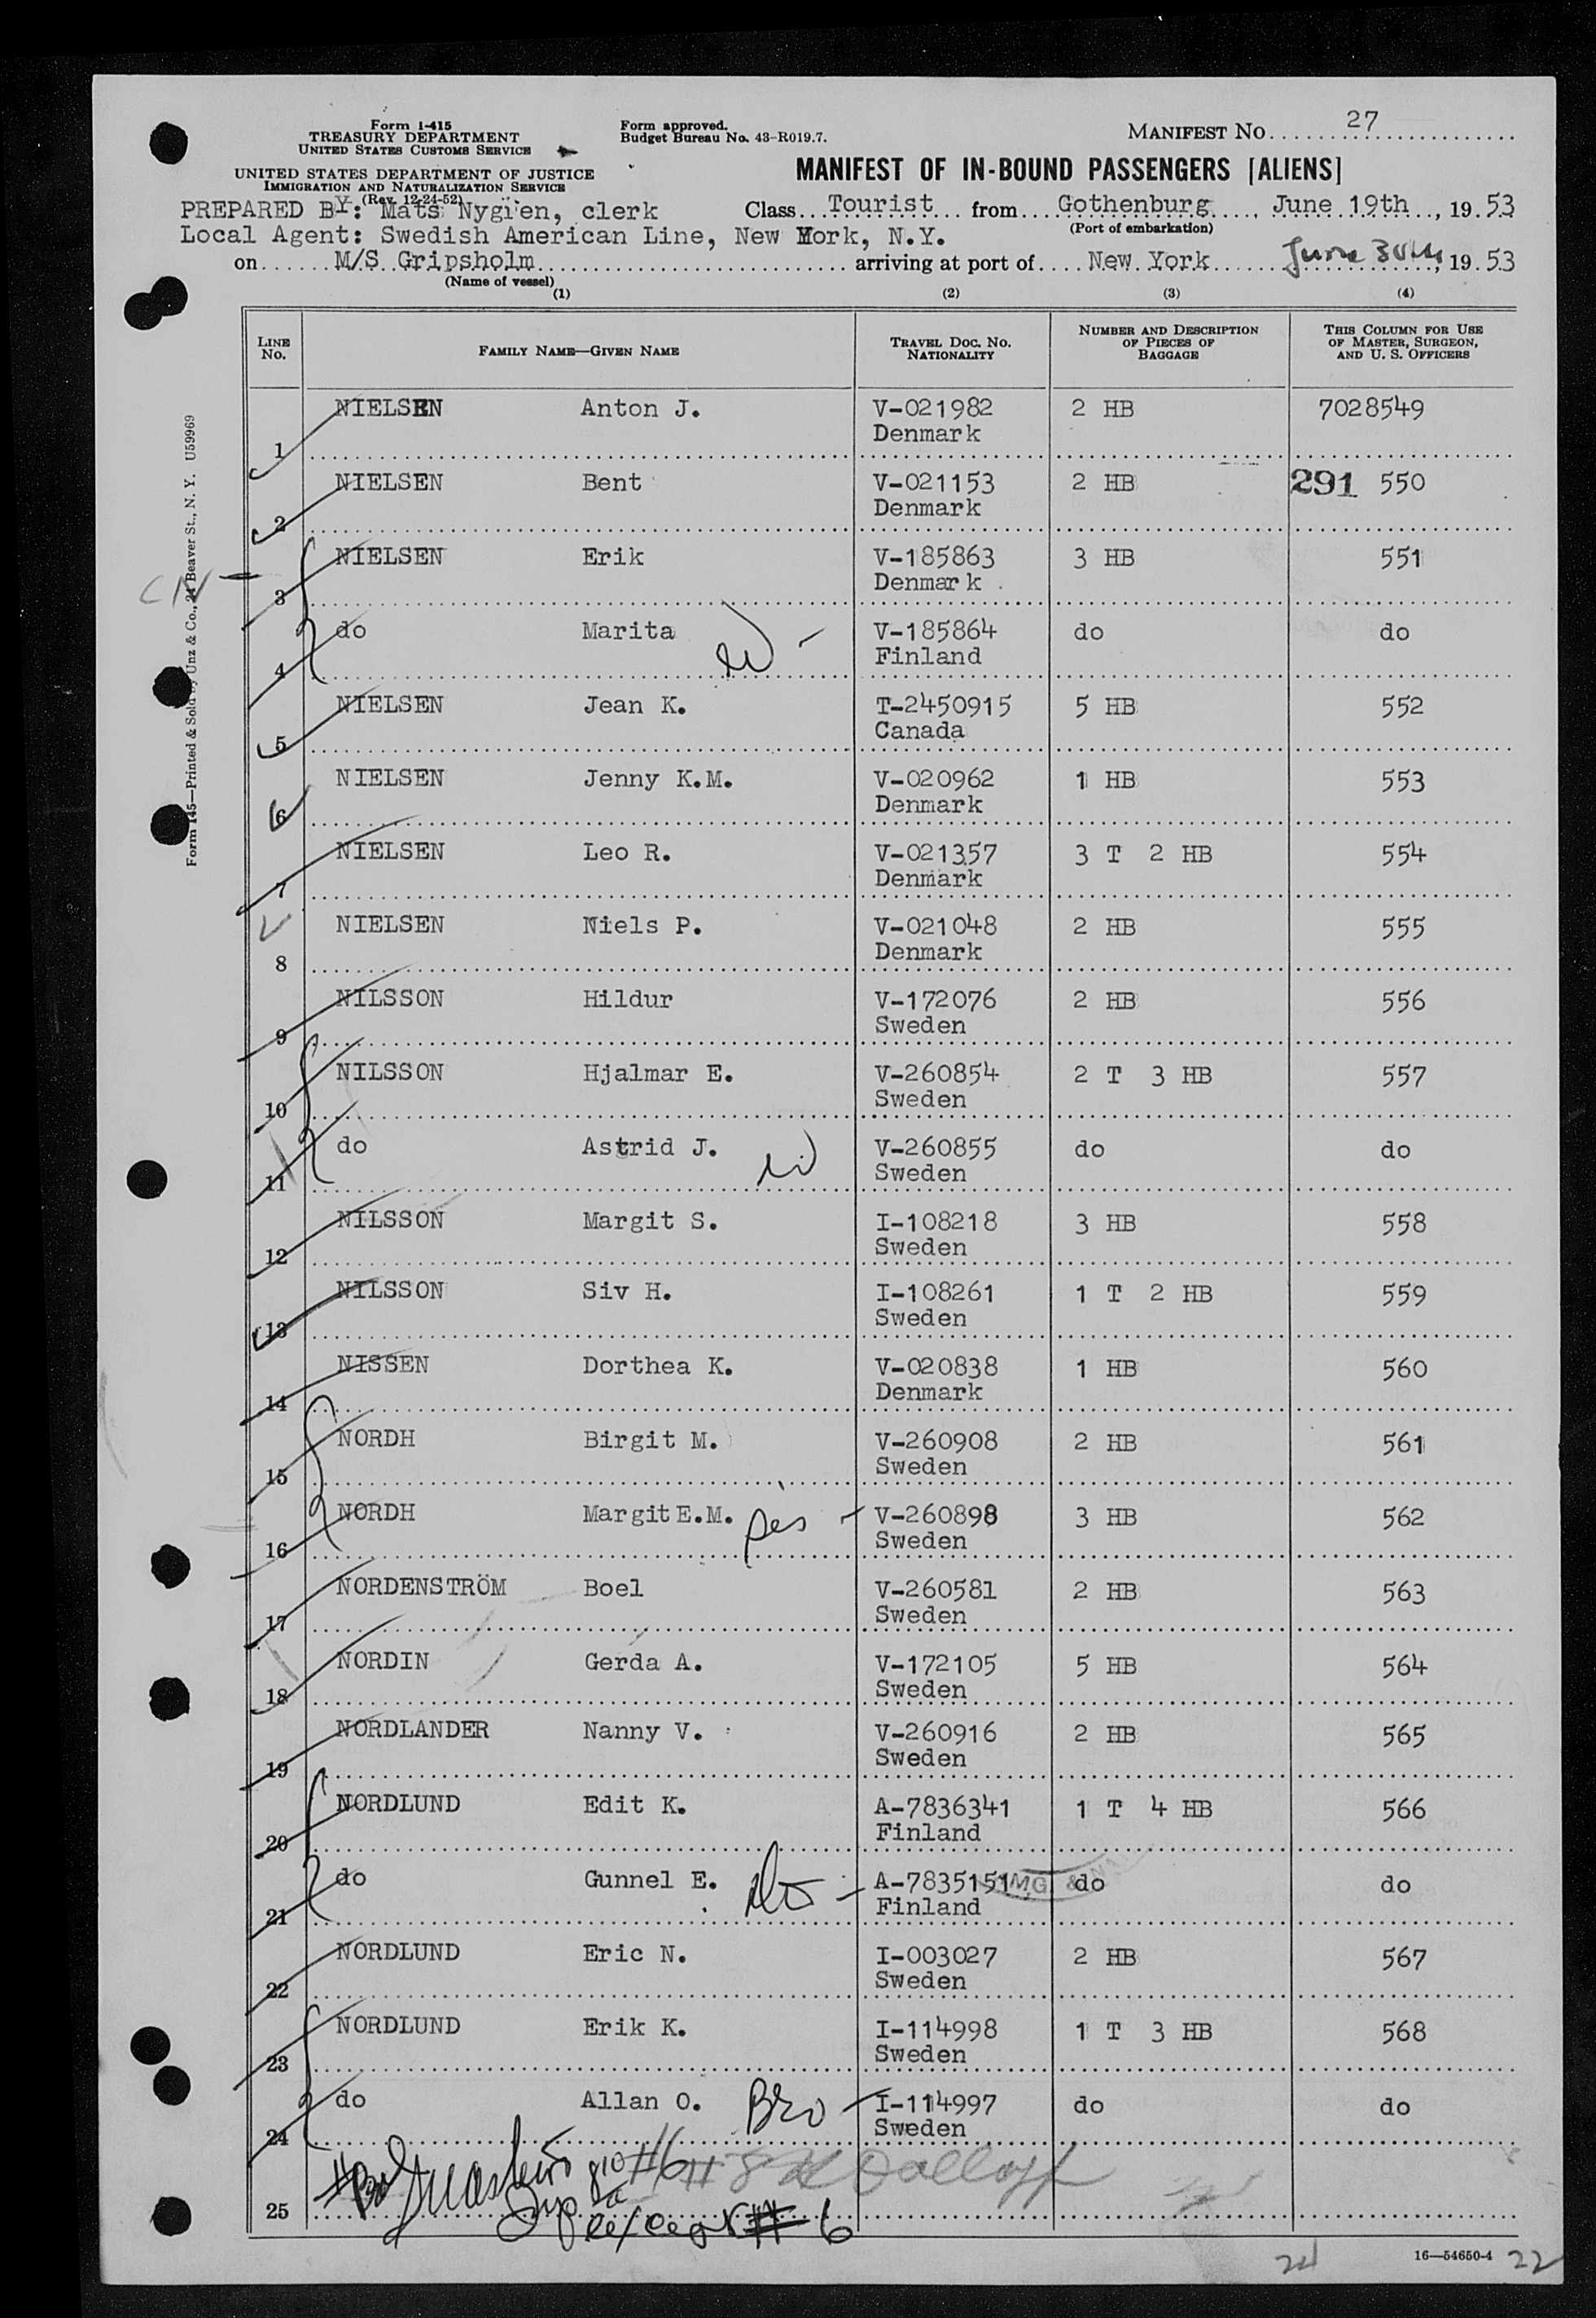 Form I-415
TREASURY DEPARTMENT
UNITED STATES CUSTOMS SERVICE
Form approved.
Budget Bureau No. 43-R019.7.
MANIFEST NO. 27
UNITED STATES DEPARTMENT OF JUSTICE
IMMIGRATION AND NATURALIZATION SERVICE
(Rev. 12-24-52)
MANIFEST OF IN-BOUND PASSENGERS [ALIENS]
PREPARED BY: Mats Nygren, clerk Class Tourist from Gothenburg, June 19th, 1953
(Port of embarkation)
Local Agent: Swedish American Line, New York, N.Y.
on M/S Gripsholm arriving at port of New York June 30th, 1953
(Name of vessel)
(1) (2) (3) (4)
LINE NO. FAMILY NAME—GIVEN NAME TRAVEL DOC. NO. NATIONALITY NUMBER AND DESCRIPTION OF PIECES OF BAGGAGE THIS COLUMN FOR USE OF MASTER, SURGEON, AND U. S. OFFICERS
1 NIELSEN Anton J. V-021982 Denmark 2 HB 7028549
2 NIELSEN Bent V-021153 Denmark 2 HB 291 550
3 NIELSEN Erik V-185863 Denmark 3 HB 551
4 do Marita V-185864 Finland do do
5 NIELSEN Jean K. T-2450915 Canada 5 HB 552
6 NIELSEN Jenny K.M. V-020962 Denmark 1 HB 553
7 NIELSEN Leo R. V-021357 Denmark 3 T 2 HB 554
8 NIELSEN Niels P. V-021048 Denmark 2 HB 555
9 NILSSON Hildur V-172076 Sweden 2 HB 556
10 NILSSON Hjalmar E. V-260854 Sweden 2 T 3 HB 557
11 do Astrid J. V-260855 Sweden do do
12 NILSSON Margit S. I-108218 Sweden 3 HB 558
13 NILSSON Siv H. I-108261 Sweden 1 T 2 HB 559
14 NISSEN Dorthea K. V-020838 Denmark 1 HB 560
15 NORDH Birgit M. V-260908 Sweden 2 HB 561
16 NORDH Margit E.M. V-260898 Sweden 3 HB 562
17 NORDENSTRÖM Boel V-260581 Sweden 2 HB 563
18 NORDIN Gerda A. V-172105 Sweden 5 HB 564
19 NORDLANDER Nanny V. V-260916 Sweden 2 HB 565
20 NORDLUND Edit K. A-7836341 Finland 1 T 4 HB 566
21 do Gunnel E. A-7835151 Finland do do
22 NORDLUND Eric N. I-003027 Sweden 2 HB 567
23 NORDLUND Erik K. I-114998 Sweden 1 T 3 HB 568
24 do Allan O. Bro I-114997 Sweden do do
25
except # 6
16—54650-4 22
Form 145—Printed & Sold by Unz & Co., 24 Beaver St., N. Y. U59969